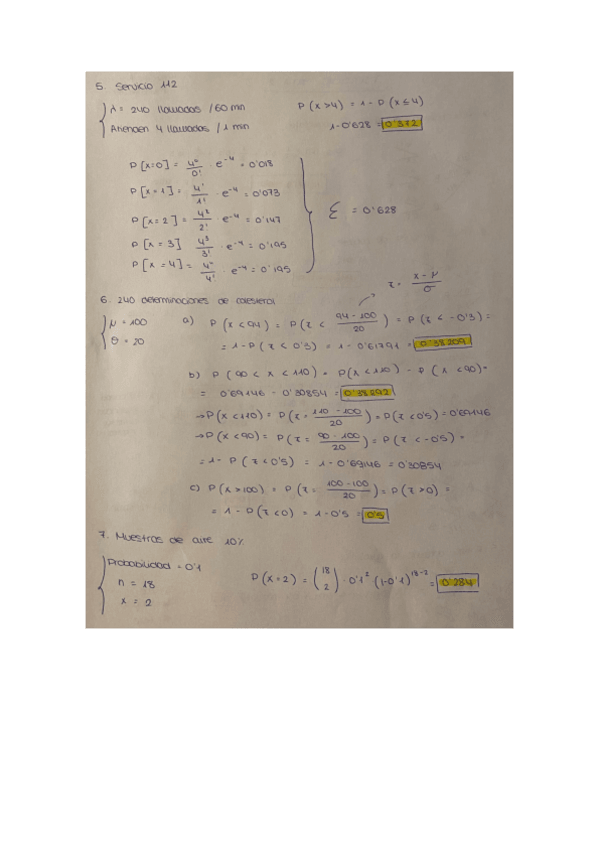 5. Servicio 112
λ = 240 llamadas / 60 min
P(x>4) = 1 - P(x≤4)
Atienden 4 llamadas / 1 min
1-0'628 = 0'372
P[x=0] = 4⁰/0! · e⁻⁴ = 0'018
P[x=1] = 4¹/1! · e⁻⁴ = 0'073
P[x=2] = 4²/2! · e⁻⁴ = 0'147
P[x=3] 4³/3! · e⁻⁴ = 0'195
P[x=4] = 4⁴/4! · e⁻⁴ = 0'195
Σ = 0'628
z = x-μ/σ
6. 240 determinaciones de colesterol
μ = 100
σ = 20
a) P(x<94) = P(z < 94-100/20) = P(z < -0'3) =
= 1-P(z < 0'3) = 1 - 0'61791 = 0'38209
b) P(90 < x < 110) = P(x<110) - P(x<90) =
= 0'69146 - 0'30854 = 0'38292
→ P(x<110) = P(z = 110-100/20) = P(z<0'5) = 0'69146
→ P(x<90) = P(z = 90-100/20) = P(z < -0'5) =
= 1 - P(z<0'5) = 1-0'69146 = 0'30854
c) P(x>100) = P(z = 100-100/20) = P(z>0) =
= 1 - P(z<0) = 1-0'5 = 0'5
7. Muestras de aire 10%
Probabilidad = 0'1
n = 18
x = 2
P(x=2) = (18 2) · 0'1² (1-0'1)¹⁸⁻² = 0'284